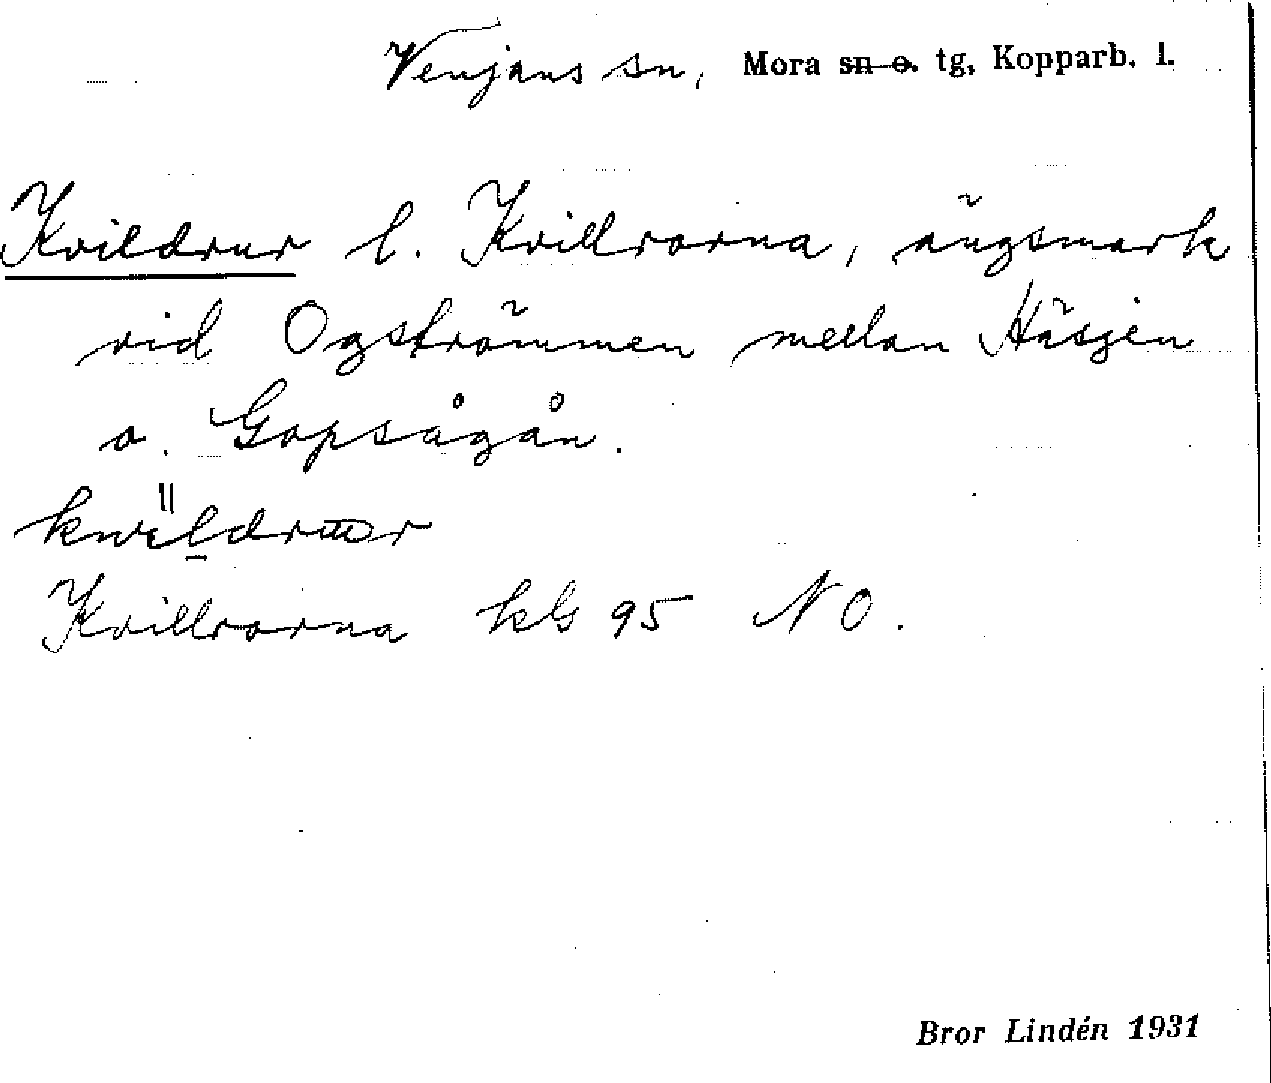 Venjans sn, Mora sn o. tg, Kopparb. l.
Kvildrur l. Kvillrorna, ängsmark
vid Ogströmmen mellan Häsjen
o. Gopsågån.
Kvillrorna kbl 95 NO.
Bror Lindén 1931